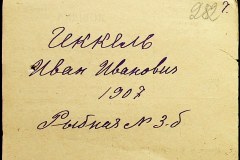 282 7.
Геккель
Иван Иванович
1907
Рыбная № 3-б